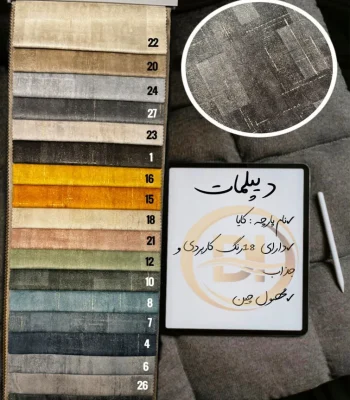 22
20
24
27
23
1
16
15
18
21
12
10
8
7
4
6
26
دیپلمات
نام پارچه : کایا
دارای 18 رنگ کاربردی و
جذاب
محصول چین